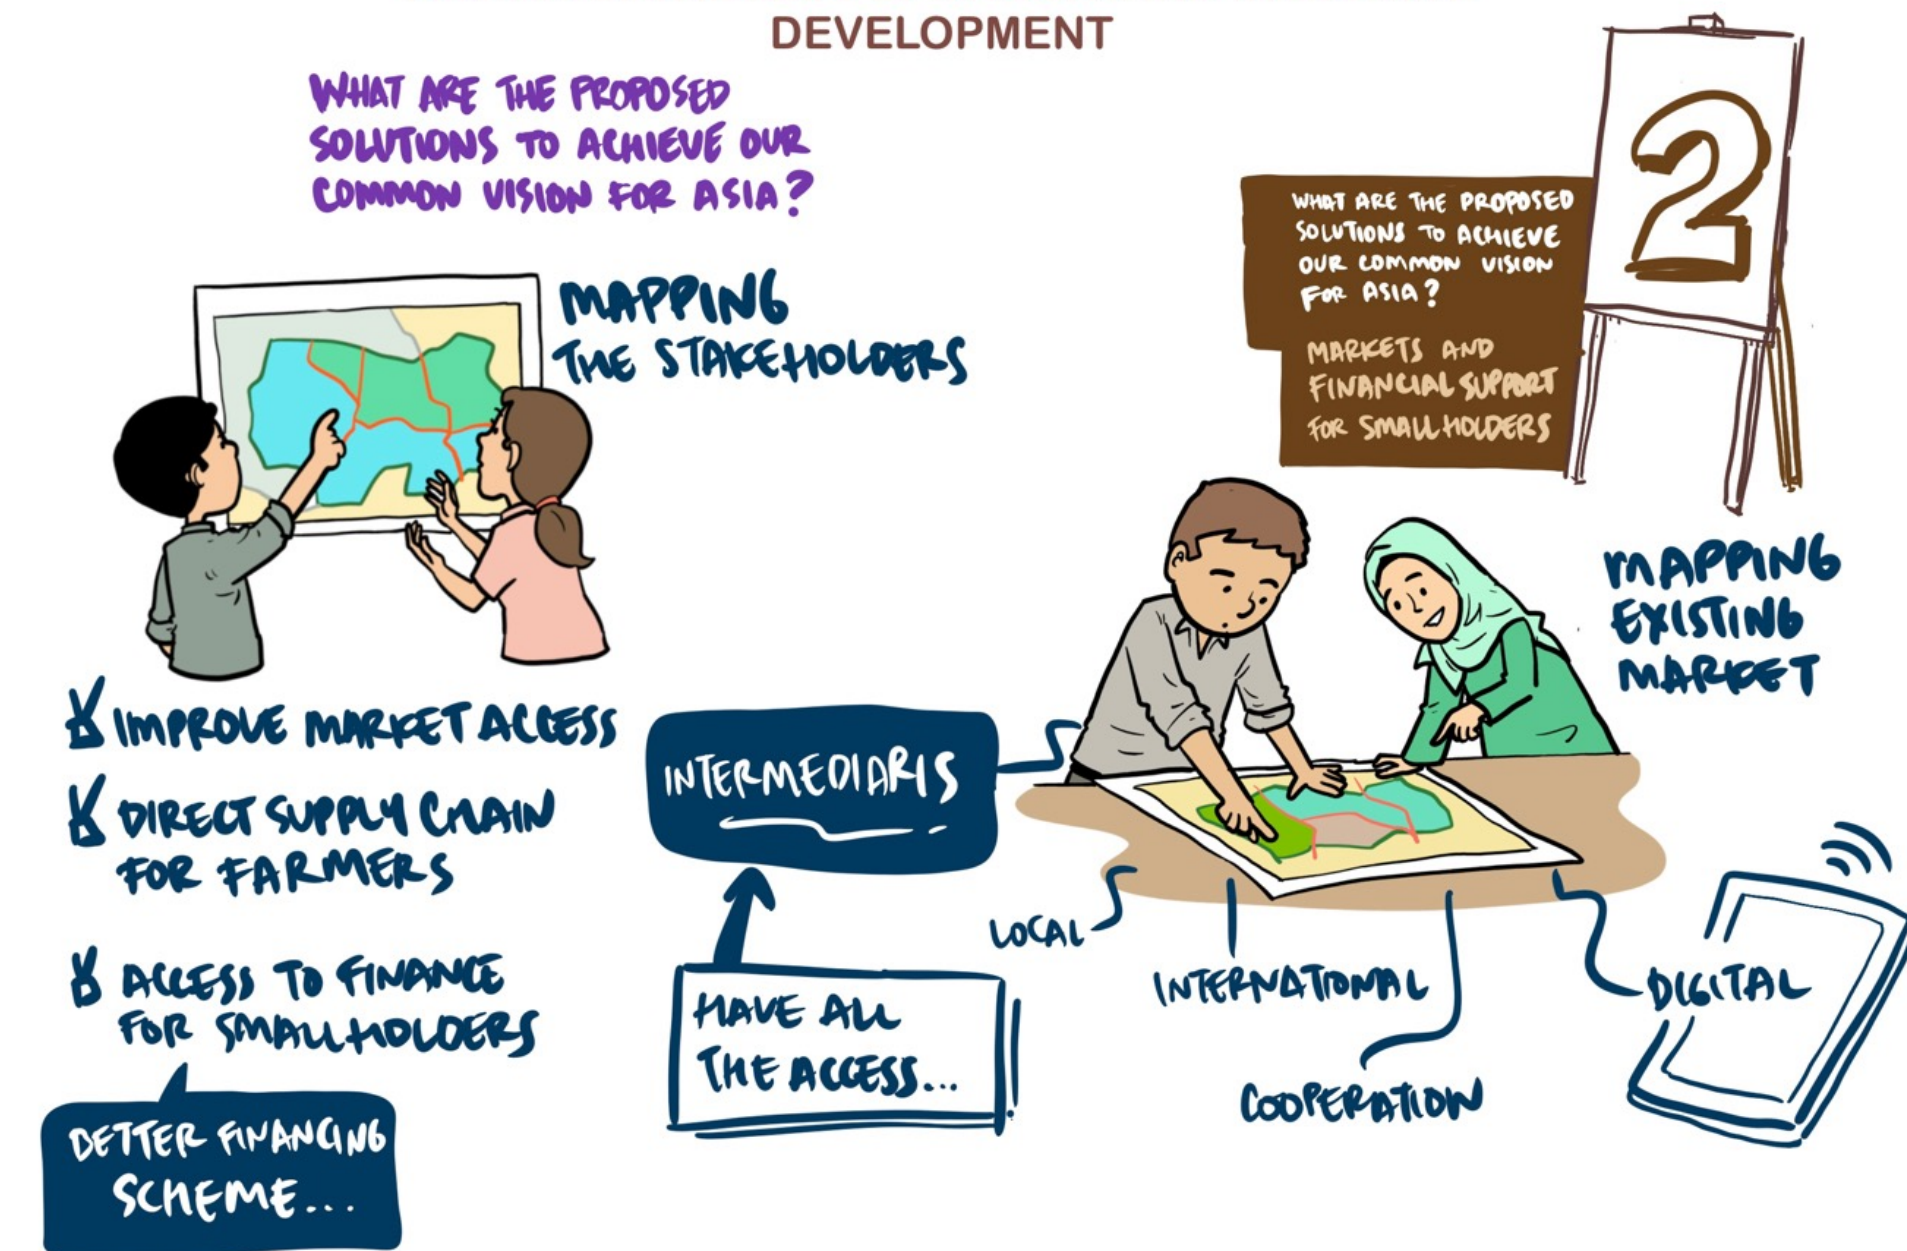 DEVELOPMENT
WHAT ARE THE PROPOSED
SOLUTIONS TO ACHIEVE OUR
COMMON VISION FOR ASIA?
2
WHAT ARE THE PROPOSED
SOLUTIONS TO ACHIEVE
OUR COMMON VISION
FOR ASIA?
MARKETS AND
FINANCIAL SUPPORT
FOR SMALLHOLDERS
MAPPING
THE STAKEHOLDERS
MAPPING
EXISTING
MARKET
IMPROVE MARKET ACCESS
DIRECT SUPPLY CHAIN
FOR FARMERS
ACCESS TO FINANCE
FOR SMALLHOLDERS
BETTER FINANCING
SCHEME...
INTERMEDIARIS
HAVE ALL
THE ACCESS...
LOCAL
INTERNATIONAL
COOPERATION
DIGITAL